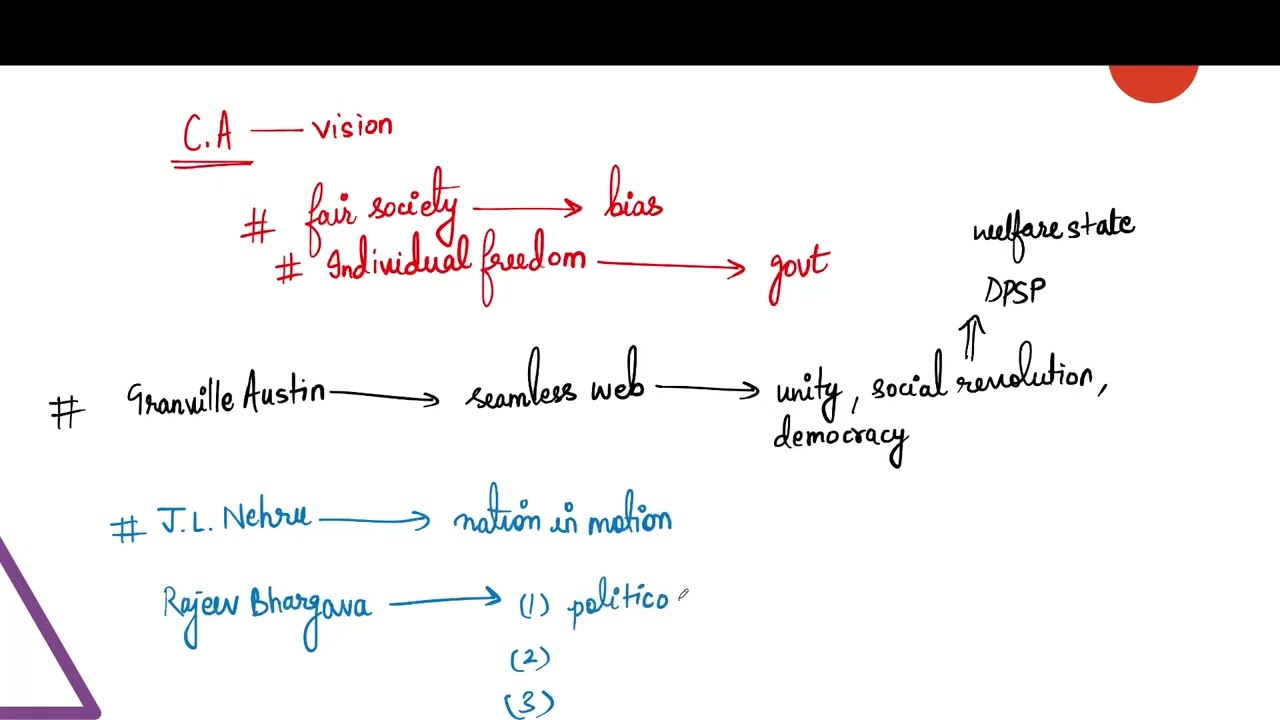 C.A — vision
# fair society → bias
# Individual freedom → govt
welfare state
DPSP
⇑
# Granville Austin → seamless web → unity, social revolution,
democracy
# J.L. Nehru → nation in motion
Rajeev Bhargava → (1) politico
(2)
(3)